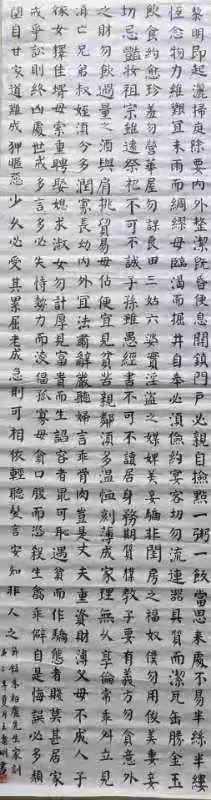 黎明即起灑掃庭除要內外整潔既昏便息關鎖門戶必親自檢點一粥一飯當思來處不易半絲半縷
恆念物力維艱宜未雨而綢繆毋臨渴而掘井自奉必須儉約宴客切勿流連器具質而潔瓦缶勝金玉
飲食約愈珍羞勿營華屋勿謀良田三姑六婆實淫盜之媒婢美妾嬌非閨房之福奴僕勿用俊美妻妾
切忌豔妝祖宗雖遠祭祀不可不誠子孫雖愚經書不可不讀居身務期質樸教子要有義方勿貪意外
之財勿飲過量之酒與肩挑貿易毋佔便宜見貧苦親鄰須多溫恤刻薄成家理無久享倫常乖舛立見
消亡兄弟叔姪須分多潤寡長幼內外宜法肅辭嚴聽婦言乖骨肉豈是丈夫重資財薄父母不成人子
嫁女擇佳婿毋索重聘娶媳求淑女勿計厚見富貴而生諂容者最可恥遇貧而作驕態者賤莫甚居家
戒爭訟則終凶處世戒多言多必失恃勢力而凌逼孤寡毋貪口腹而恣殺生禽乖僻自是悔誤必多頹
自甘家道難成狎暱惡少久必受其累屈老成急則可相依輕聽發言安知非人之
朱柏廬先生家訓